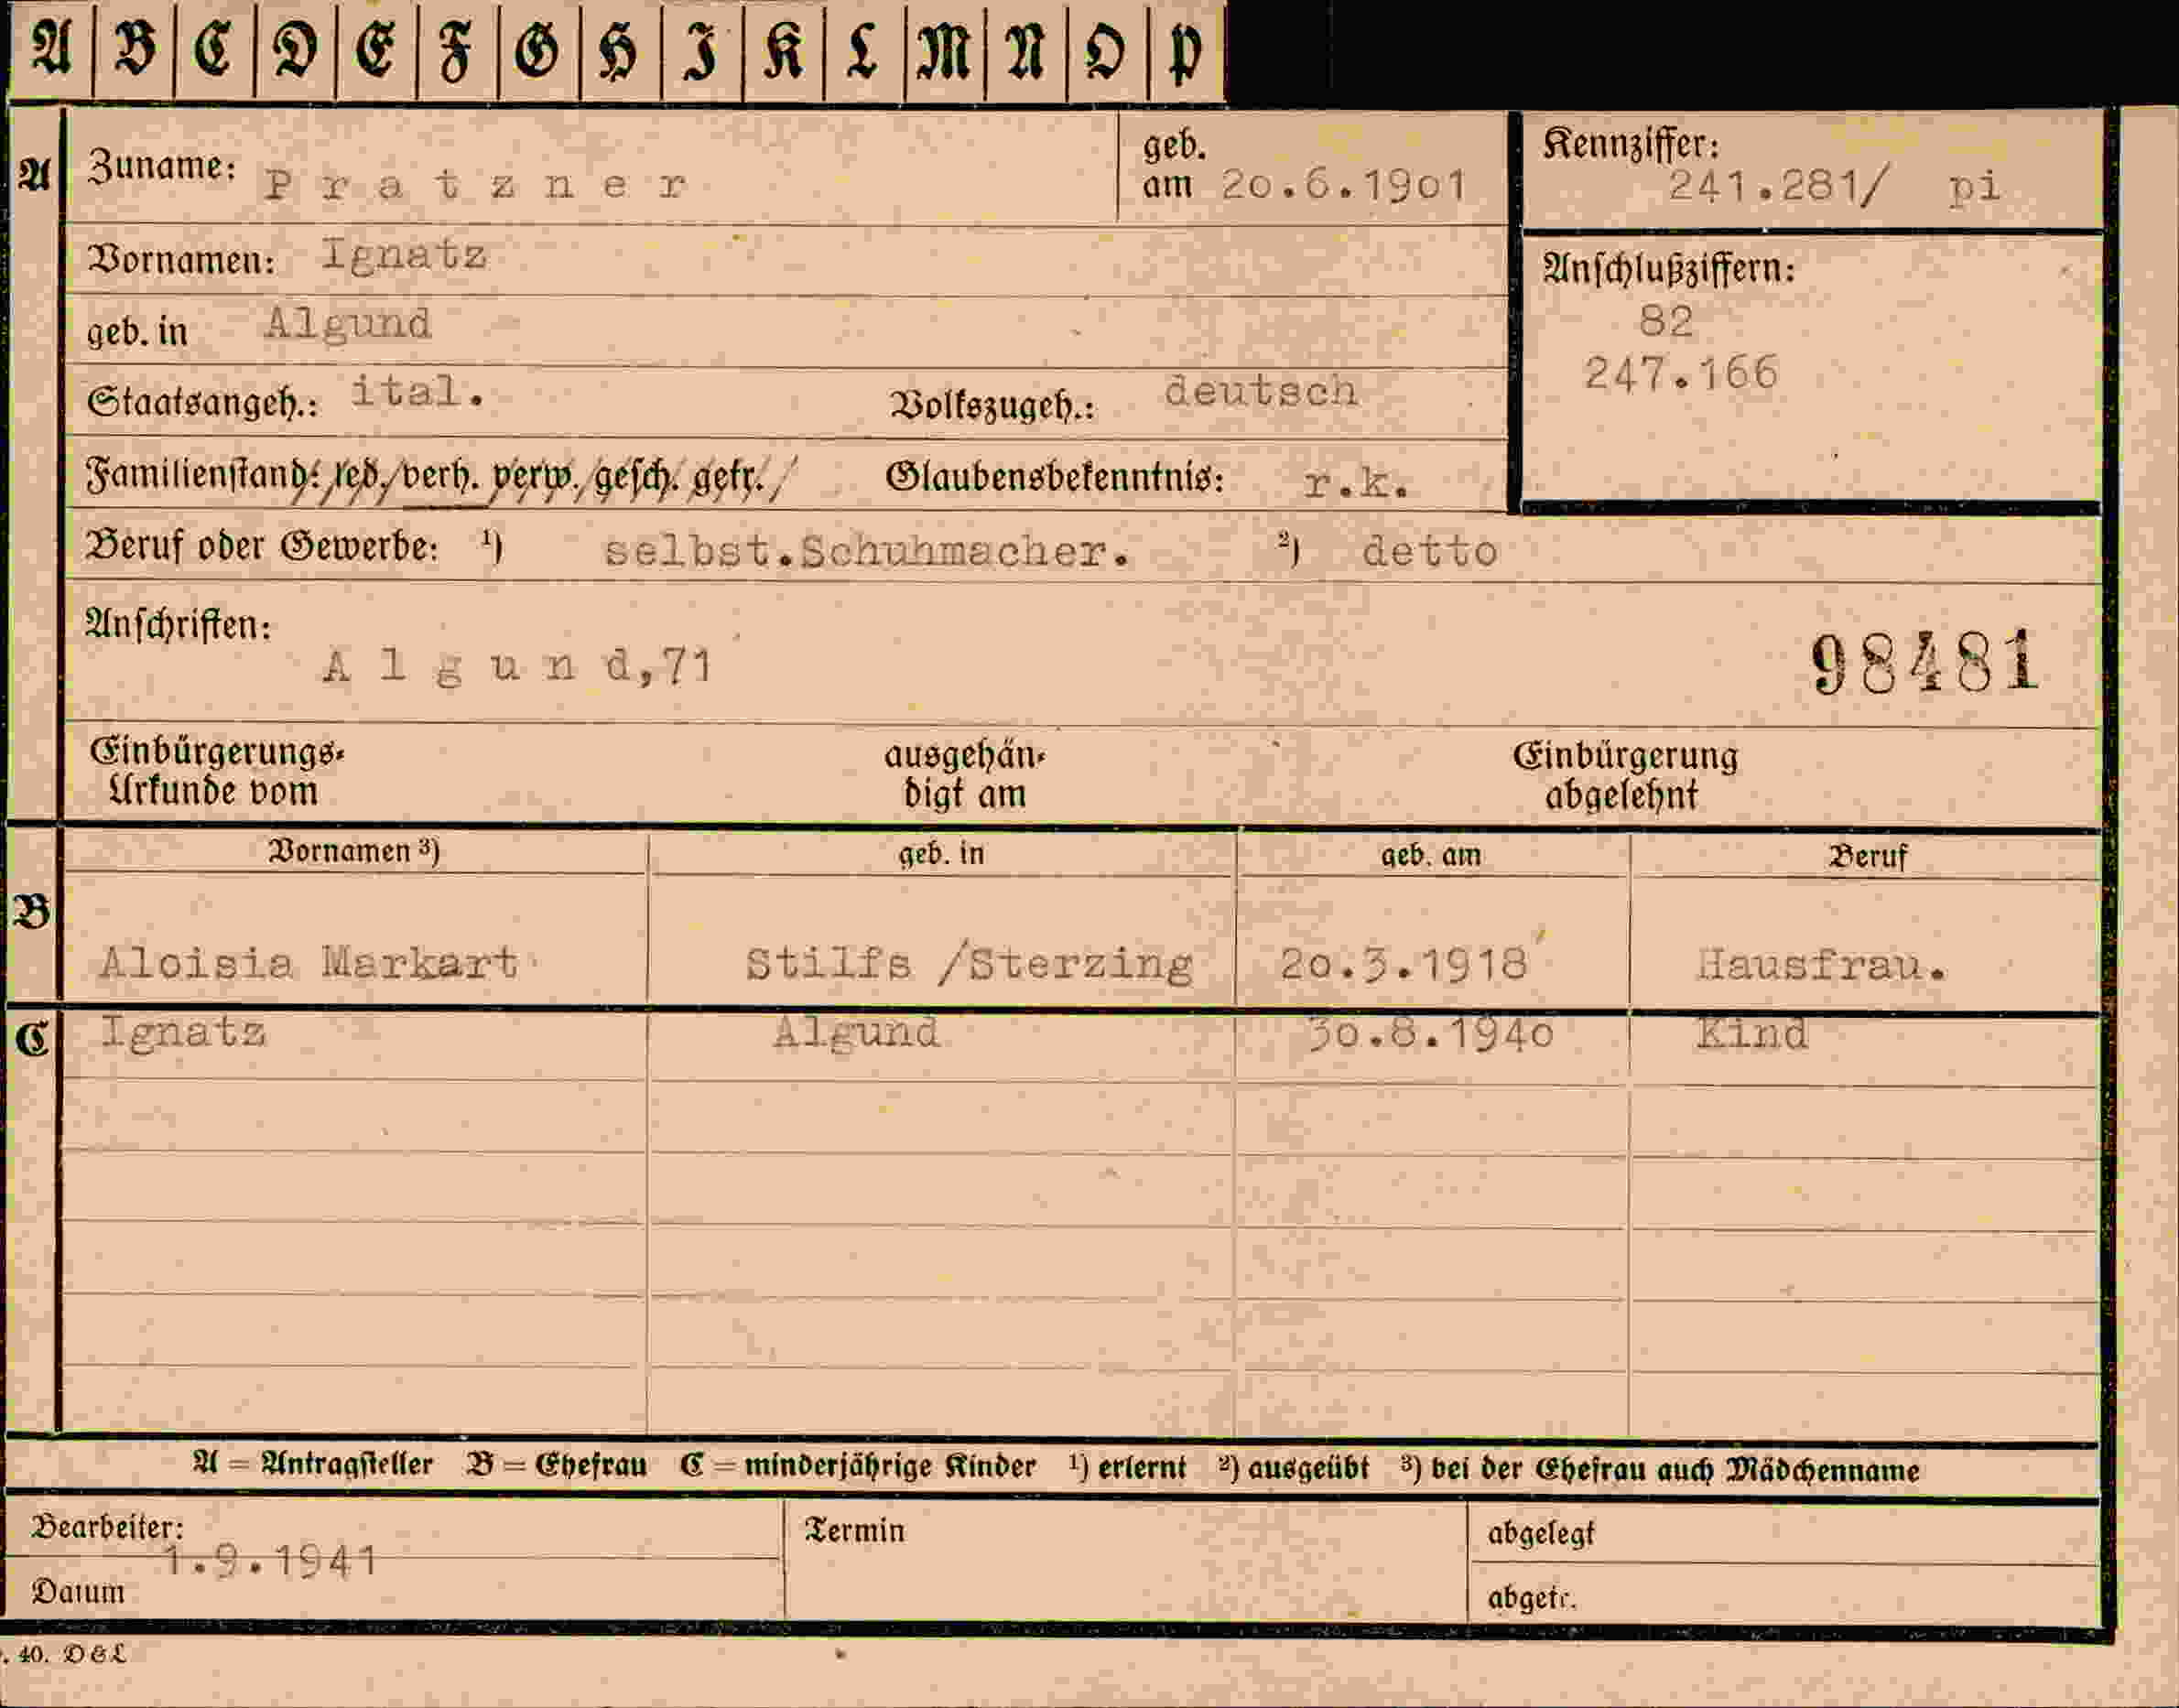 A B C D E F G H I K L M N O P
A Zuname: Pratzner geb. am 20.6.1901 Kennziffer: 241.281/ pi
Vornamen: Ignatz Anschlußziffern:
82
geb. in Algund
247.166
Staatsangeh.: ital. Volkszugeh.: deutsch
Familienstand: led. verh. verw. gesch. getr. Glaubensbekenntnis: r.k.
Beruf oder Gewerbe: 1) selbst.Schuhmacher. 2) detto
Anschriften:
Algund,71 98481
Einbürgerungs- ausgehän- Einbürgerung
Urkunde vom digt am abgelehnt
Vornamen 3) geb. in geb. am Beruf
B
Aloisia Markart Stilfs /Sterzing 20.3.1918 Hausfrau.
C Ignatz Algund 30.8.1940 Kind
A = Antragsteller B = Ehefrau C = minderjährige Kinder 1) erlernt 2) ausgeübt 3) bei der Ehefrau auch Mädchenname
Bearbeiter: Termin abgelegt
1.9.1941
Datum abgetr.
. 40. D & L